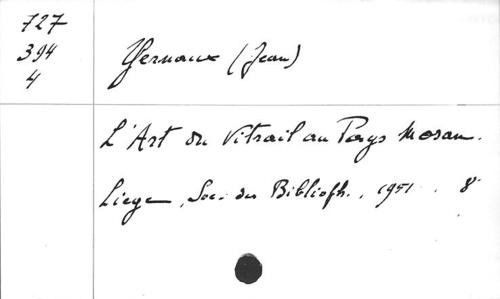 727
394
4
Yernaux (Jean)
L'Art du Vitrail au Pays Mosan.
Liège, Soc. des Biblioph., 1951. 8°